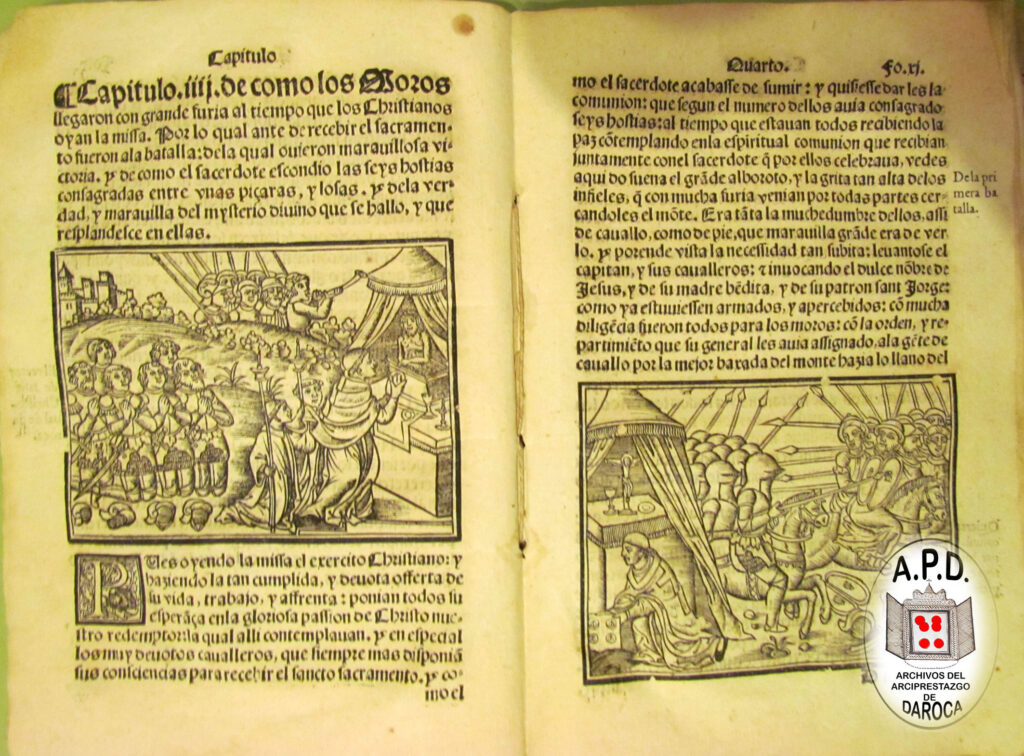 Capitulo
¶Capitulo.iiij.de como los Moros
llegaron con grande furia al tiempo que los Christianos
oyan la missa. Por lo qual ante de recebir el sacramen-
to fueron ala batalla: dela qual ouieron marauillosa vi-
ctoria. y de como el sacerdote escondio las seys hostias
consagradas entre vnas piçaras, y losas. y dela ver-
dad, y marauilla del mysterio diuino que se hallo, y que
resplandesce en ellas.
Pues oyendo la missa el exercito Christiano: y
hauiendo la tan cumplida, y deuota offerta de
su vida, trabajo, y affrenta: ponian todos su
esperãça enla gloriosa passion de Christo nue-
stro redemptor: la qual alli contemplauan. y en especial
los muy deuotos caualleros, que siempre mas disponiã
sus consciencias para recebir el sancto sacramento. y co-
mo el
Quarto. Fo.xj.
mo el sacerdote acabasse de sumir: y quisiesse dar les la
comunion: que segun el numero dellos auia consagrado
seys hostias: al tiempo que estauan todos recibiendo la
paz cõtemplando enla espiritual comunion que recibian
juntamente conel sacerdote q̃ por ellos celebraua, vedes
aqui do suena el grãde alboroto, y la grita tan alta delos
infieles, q̃ con mucha furia venian por todas partes cer-
candoles el mõte. Era tãta la muchedumbre dellos, assi
de cauallo, como de pie, que marauilla grãde era de ver
lo. y porende vista la necessidad tan subita: leuantose el
capitan, y sus caualleros: τ inuocando el dulce nõbre de
Jesus, y de su madre bẽdita, y de su patron sant Jorge:
como ya estuuiessen armados, y apercebidos: cõ mucha
diligẽcia fueron todos para los moros: cõ la orden, y re-
partimiẽto que su general les auia assignado. ala gẽte de
cauallo por la mejor baxada del monte hazia lo llano del
De la pri
mera ba
talla.
A.P.D.
ARCHIVOS DEL
ARCIPRESTAZGO
DE
DAROCA